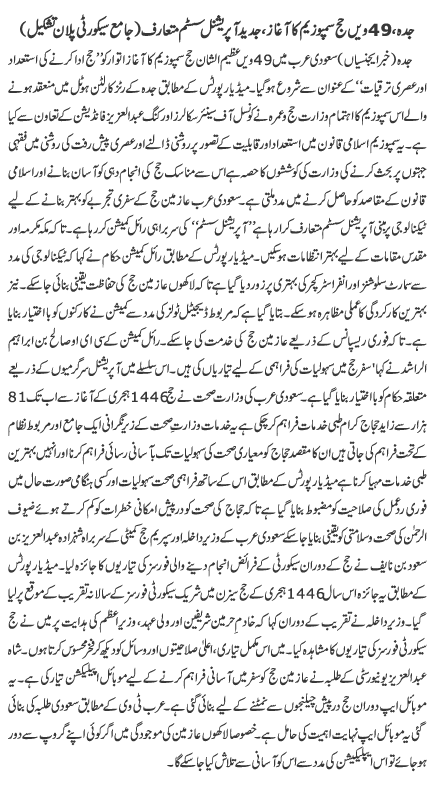 جدہ، 49 ویں حج سمپوزیم کا آغاز، جدید آپریشنل سسٹم متعارف (جامع سیکورٹی پلان تشکیل)
جدہ (خبر ایجنسیاں) سعودی عرب میں 49 ویں عظیم الشان حج سمپوزیم کا آغاز اتوار کو ’’حج ادا کرنے کی استعداد
اور عصری ترقیات‘‘ کے عنوان سے شروع ہو گیا۔ میڈیا رپورٹس کے مطابق جدہ کے رٹز کارلٹن ہوٹل میں منعقد ہونے
والے اس سمپوزیم کا اہتمام وزارت حج و عمرہ نے کونسل آف سینئر سکالرز اور کنگ عبدالعزیز فاؤنڈیشن کے تعاون سے کیا
ہے۔ یہ سمپوزیم اسلامی قانون میں استعداد اور قابلیت کے تصور پر روشنی ڈالنے اور عصری پیش رفت کی روشنی میں فقہی
جہتوں پر بحث کرنے کی وزارت کی کوششوں کا حصہ ہے اس سے مناسک حج کی انجام دہی کو آسان بنانے اور اسلامی
قانون کے مقاصد کو حاصل کرنے میں مدد ملتی ہے۔ سعودی عرب عازمین حج کے سفری تجربے کو بہتر بنانے کے لیے
ٹیکنالوجی پر مبنی آپریشنل سسٹم متعارف کرا رہا ہے ’’آپریشنل سسٹم‘‘ کی سربراہی رائل کمیشن کر رہا ہے۔ تاکہ مکہ مکرمہ اور
مقدس مقامات کے لیے بہتر انتظامات ہو سکیں۔ میڈیا رپورٹس کے مطابق رائل کمیشن حکام نے کہا کہ ٹیکنالوجی کی مدد
سے سمارٹ سلوشنز اور انفراسٹرکچر کی بہتری پر زور دیا گیا ہے تاکہ لاکھوں عازمین حج کی حفاظت یقینی بنائی جا سکے۔ نیز
بہترین کارکردگی کا عملی مظاہرہ ہو سکے۔ مربوط ڈیجیٹل ٹولز کی مدد سے کمیشن نے کارکنوں کو بااختیار بنایا
ہے۔ تاکہ فوری ریسپانس کے ذریعے عازمین حج کی خدمت کی جا سکے۔ رائل کمیشن کے سی ای او صالح بن ابراہیم
الراشد نے کہا ’سفر حج میں سہولیات کی فراہمی کے لیے تیاریاں کی ہیں۔ اس سلسلے میں آپریشنل سرگرمیوں کے ذریعے
متعلقہ حکام کو بااختیار بنایا گیا ہے۔ سعودی عرب کی وزارت صحت نے حج 1446 ہجری کے آغاز سے اب تک 81
ہزار سے زائد حجاج کرام طبی خدمات فراہم کر چکی ہے یہ خدمات وزارت صحت کے زیر نگرانی ایک جامع اور مربوط نظام
کے تحت فراہم کی جاتی ہیں ان کا مقصد حجاج کو معیاری صحت کی سہولیات تک بآسانی رسائی فراہم کرنا اور انہیں بہترین
طبی خدمات مہیا کرنا ہے میڈیا رپورٹس کے مطابق اس کے ساتھ فراہمی صحت سہولیات اور کسی ہنگامی صورت حال میں
فوری رد عمل کی صلاحیت کو مضبوط بنایا گیا ہے تاکہ حجاج کو درپیش امکانی خطرات کو کم کرتے ہوئے ضیوف
الرحمٰن کی صحت و سلامتی کو یقینی بنایا جا سکے سعودی عرب کے وزیر داخلہ اور سپریم حج کمیٹی کے سربراہ شہزادہ عبدالعزیز بن
سعود بن نایف نے حج کے دوران سیکورٹی کے فرائض انجام دینے والی فورسز کی تیاریوں کا جائزہ لیا۔ میڈیا رپورٹس
کے مطابق یہ جائزہ اس سال 1446 ہجری کے حج سیزن میں شریک سیکورٹی فورسز کے سالانہ تقریب کے موقع پر لیا
گیا۔ وزیر داخلہ نے تقریب کے دوران کہا کہ خادم حرمین شریفین اور ولی عہد، وزیر اعظم کی ہدایت پر میں نے حج
سیکورٹی فورسز کی تیاریوں کا مشاہدہ کیا۔ میں اس مکمل تیاری، اعلیٰ صلاحیتوں اور وسائل کو دیکھ کر فخر محسوس کرتا ہوں۔ شاہ
عبدالعزیز یونیورسٹی کے طلبہ نے عازمین حج کو سفر میں آسانی فراہم کرنے کے لیے موبائل اپیلیکیشن تیاری کی ہے۔ یہ
موبائل ایپ دوران حج درپیش چیلنجوں سے نمٹنے کے لیے بنائی گئی ہے۔ عرب ٹی وی کے مطابق سعودی طلبہ کی بنائی
گئی یہ موبائل ایپ نہایت اہمیت کی حامل ہے۔ خصوصا لاکھوں عازمین کی موجودگی میں اگر کوئی اپنے گروپ سے دور
ہو جائے تو اس ایپلیکیشن کی مدد سے اس کو آسانی سے تلاش کیا جا سکے گا۔